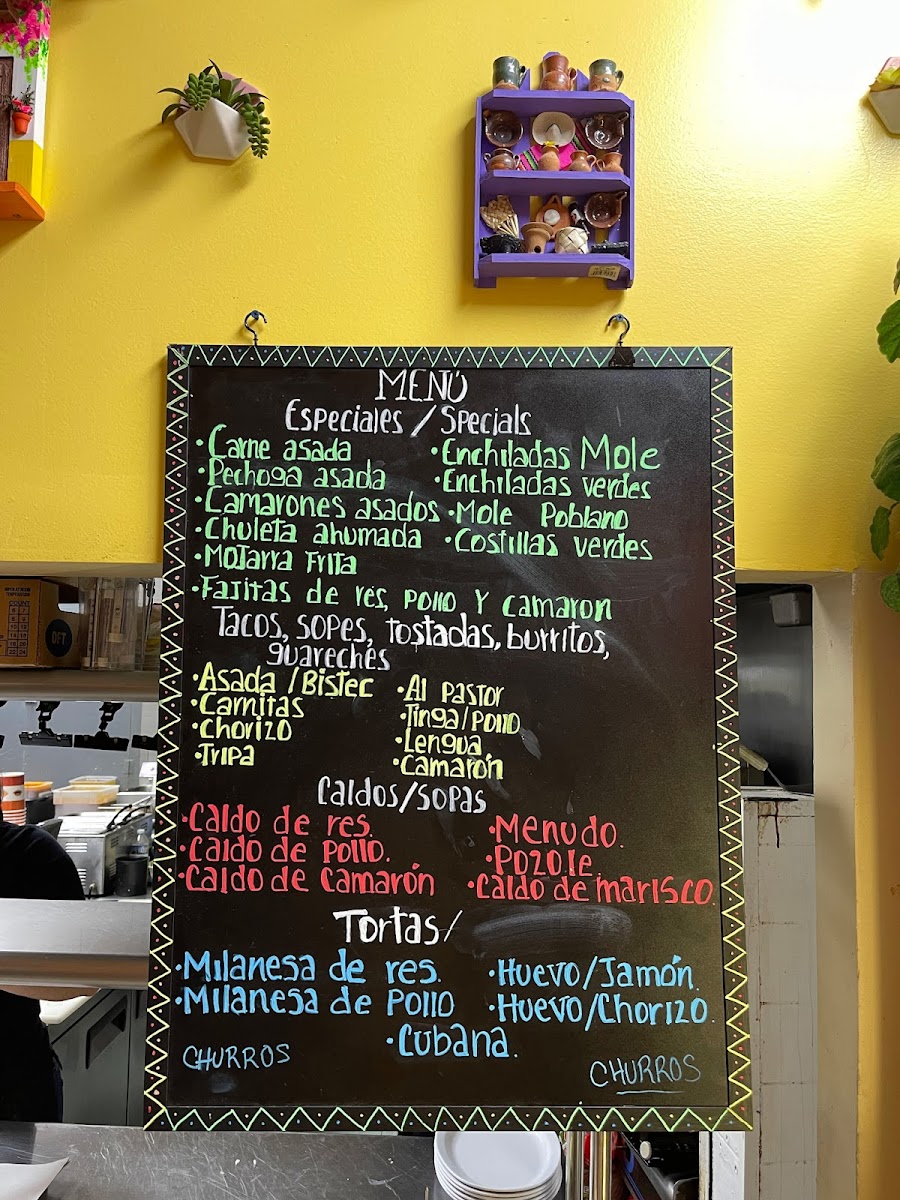 MENÚ
Especiales / Specials
• Carne asada
• Pechoga asada
• Camarones asados
• Chuleta ahumada
• Mojarra Frita
• Enchiladas Mole
• Enchiladas verdes
• Mole Poblano
• Costillas verdes
• Fajitas de res, pollo y camaron
Tacos, sopes, tostadas, burritos,
guareches
• Asada / Bistec
• Carnitas
• Chorizo
• Tripa
• Al Pastor
• Tinga/Pollo
• Lengua
• Camarón
Caldos/sopas
• Caldo de res.
• Caldo de Pollo.
• Caldo de Camarón
• Menudo.
• Pozole.
• Caldo de marisco.
Tortas/
• Milanesa de res.
• Milanesa de Pollo
• Huevo/Jamón.
• Huevo/Chorizo.
• Cubana.
CHURROS
CHURROS
DFT